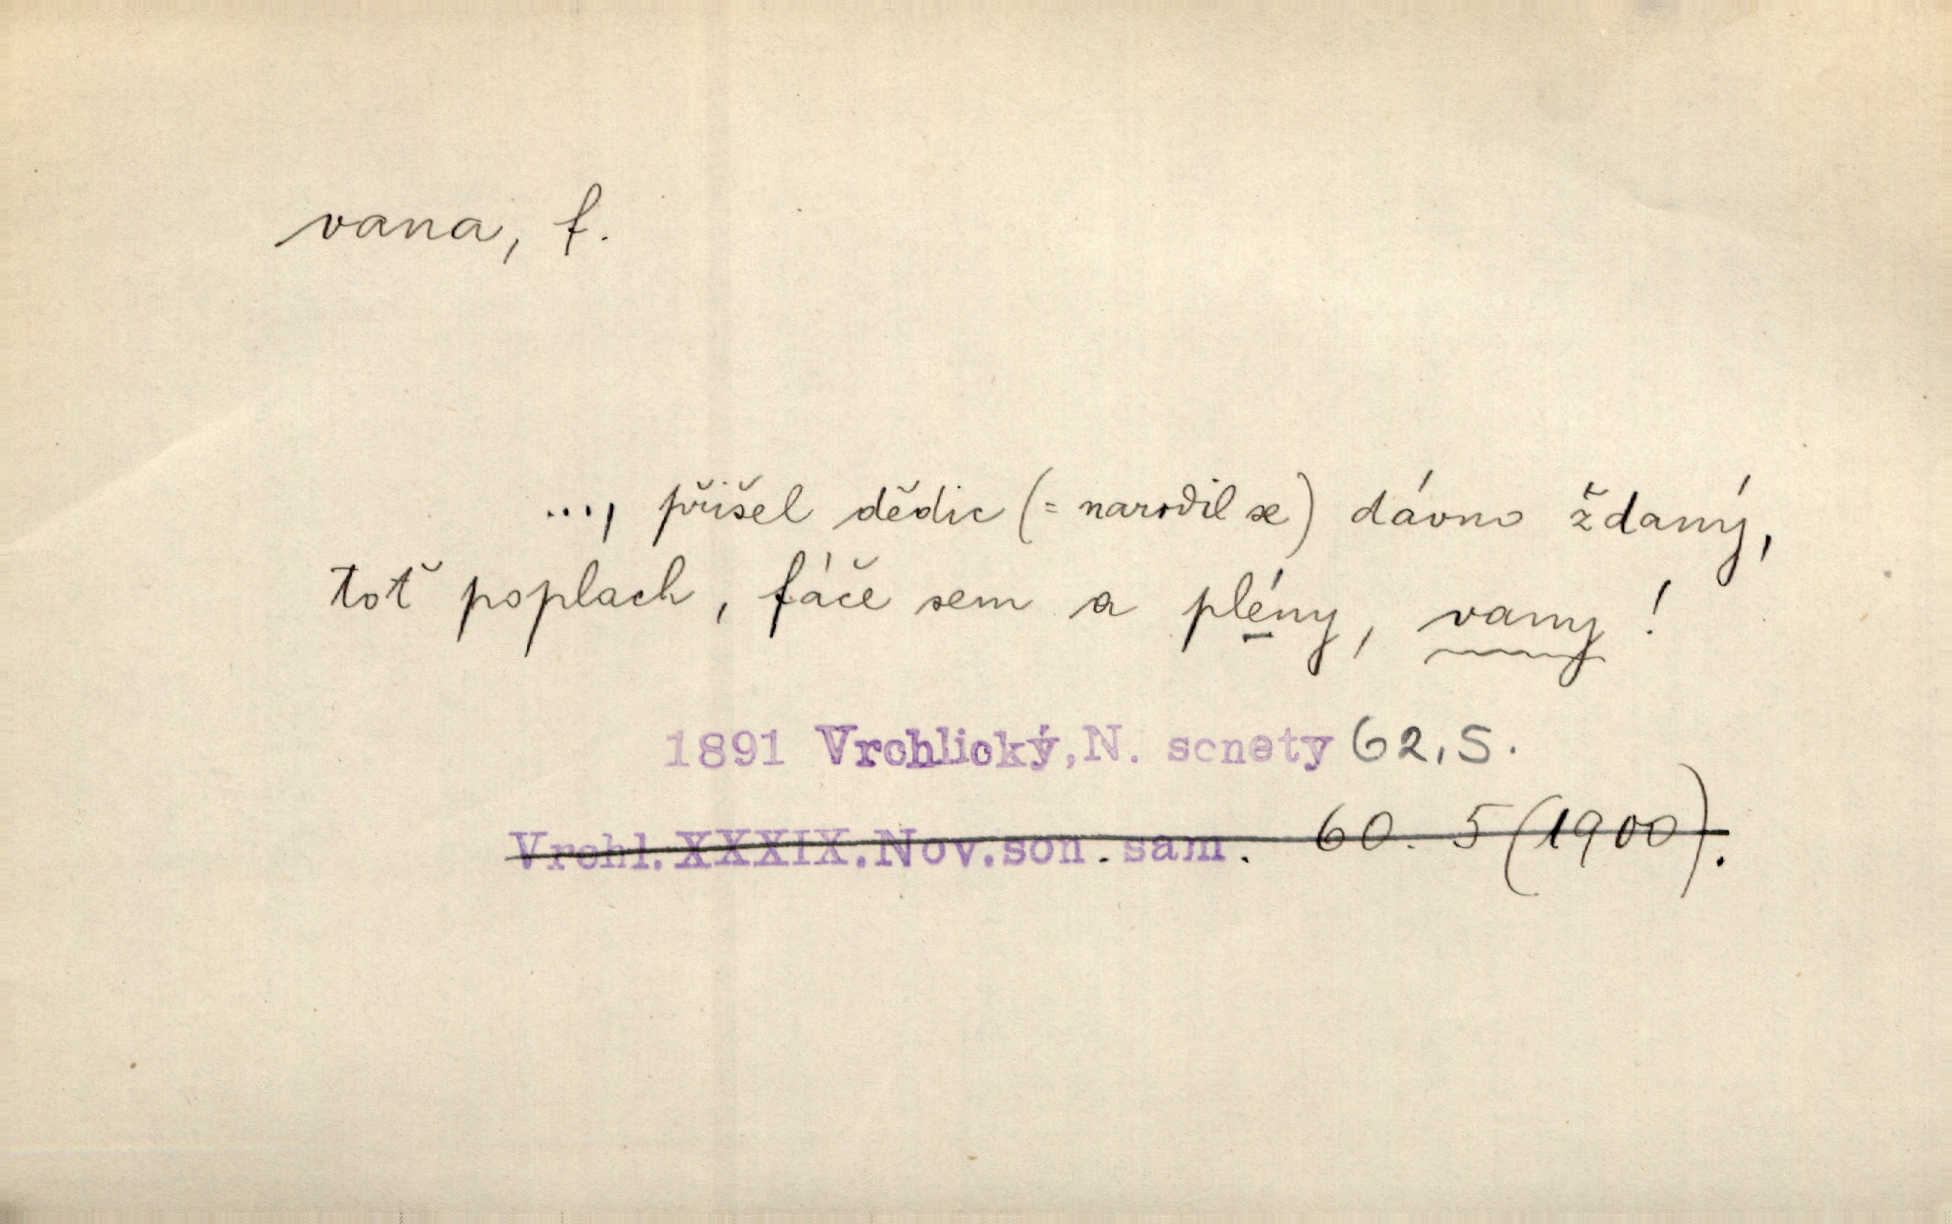 vana, f.
..., přišel dědic (= narodil se) dávno ždaný,
toť poplach, fáče sem a plény, vany!
1891 Vrchlický, N. sonety 62,5.
Vrchl. XXXIX. Nov. son. sam. 60. 5 (1900).